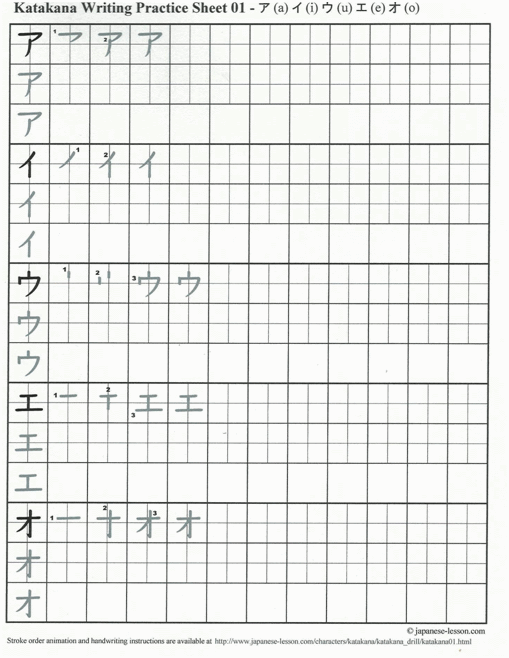 Katakana Writing Practice Sheet 01 - ア (a) イ (i) ウ (u) エ (e) オ (o)
ア 1 ア 2 ア ア
ア
ア
イ 1 2 イ イ
イ
イ
ウ 1 2 3 ウ ウ
ウ
ウ
エ 1 2 3 エ エ
エ
エ
オ 1 2 3 オ オ
オ
オ
© japanese-lesson.com
Stroke order animation and handwriting instructions are available at http://www.japanese-lesson.com/characters/katakana/katakana_drill/katakana01.html